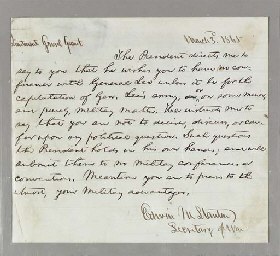 Lieutenant Genl Grant March 3. 1865
The President directs me to
say to you that he wishes you to have no con-
ference with General Lee unless it be for the
capitulation of Gen. Lee's army, or on some minor
and purely military matter. He instructs me to
say that you are not to decide, discuss, or con-
fer upon any political question. Such questions
the President holds in his own hands; and will
submit them to no military conferences or
conventions. Meantime you are to press to the
utmost, your military advantages.
Edwin M Stanton
Secretary of War